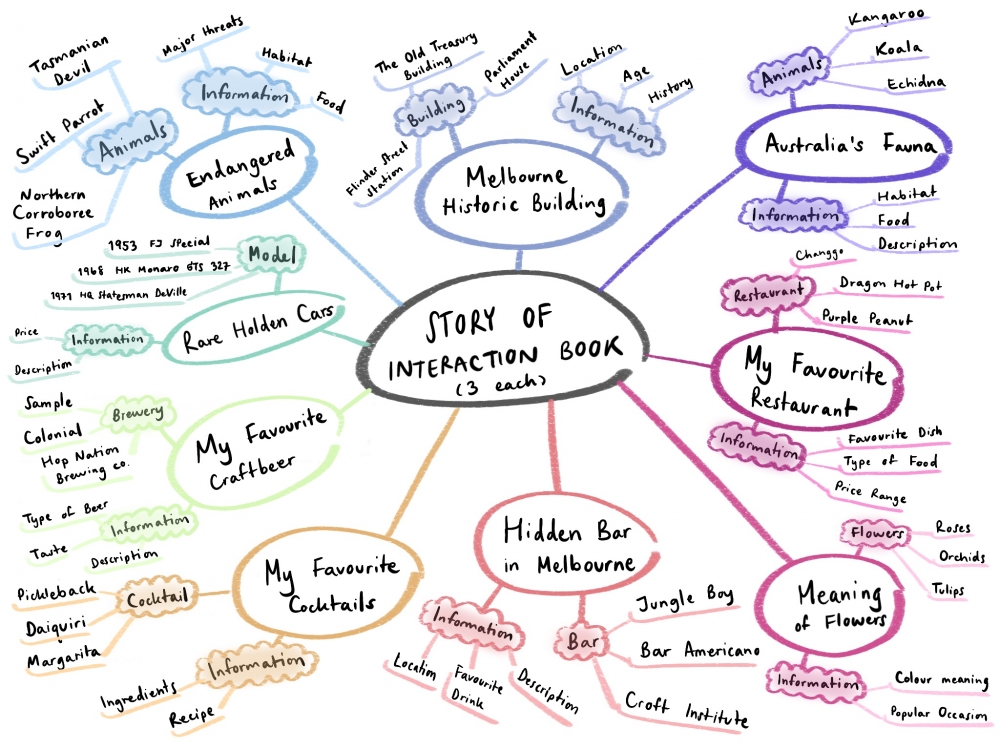 STORY OF
INTERACTION BOOK
(3 each)
Endangered
Animals
Animals
Tasmanian
Devil
Swift Parrot
Northern
Corroboree
Frog
Information
Major threats
Habitat
Food
Melbourne
Historic Building
Building
The Old Treasury
Building
Parliament
House
Flinder Street
Station
Information
Location
Age
History
Australia's Fauna
Animals
Kangaroo
Koala
Echidna
Information
Habitat
Food
Description
My Favourite
Restaurant
Restaurant
Changgo
Dragon Hot Pot
Purple Peanut
Information
Favourite Dish
Type of Food
Price Range
Meaning
of Flowers
Flowers
Roses
Orchids
Tulips
Information
Colour meaning
Popular Occasion
Hidden Bar
in Melbourne
Information
Location
Favourite
Drink
Description
Bar
Jungle Boy
Bar Americano
Croft Institute
My Favourite
Cocktails
Cocktail
Pickleback
Daiquiri
Margarita
Information
Ingredients
Recipe
My Favourite
Craftbeer
Brewery
Sample
Colonial
Hop Nation
Brewing co.
Information
Type of Beer
Taste
Description
Rare Holden Cars
Model
1953 FJ Special
1968 HK Monaro GTS 327
1971 HQ Statesman DeVille
Information
Price
Description